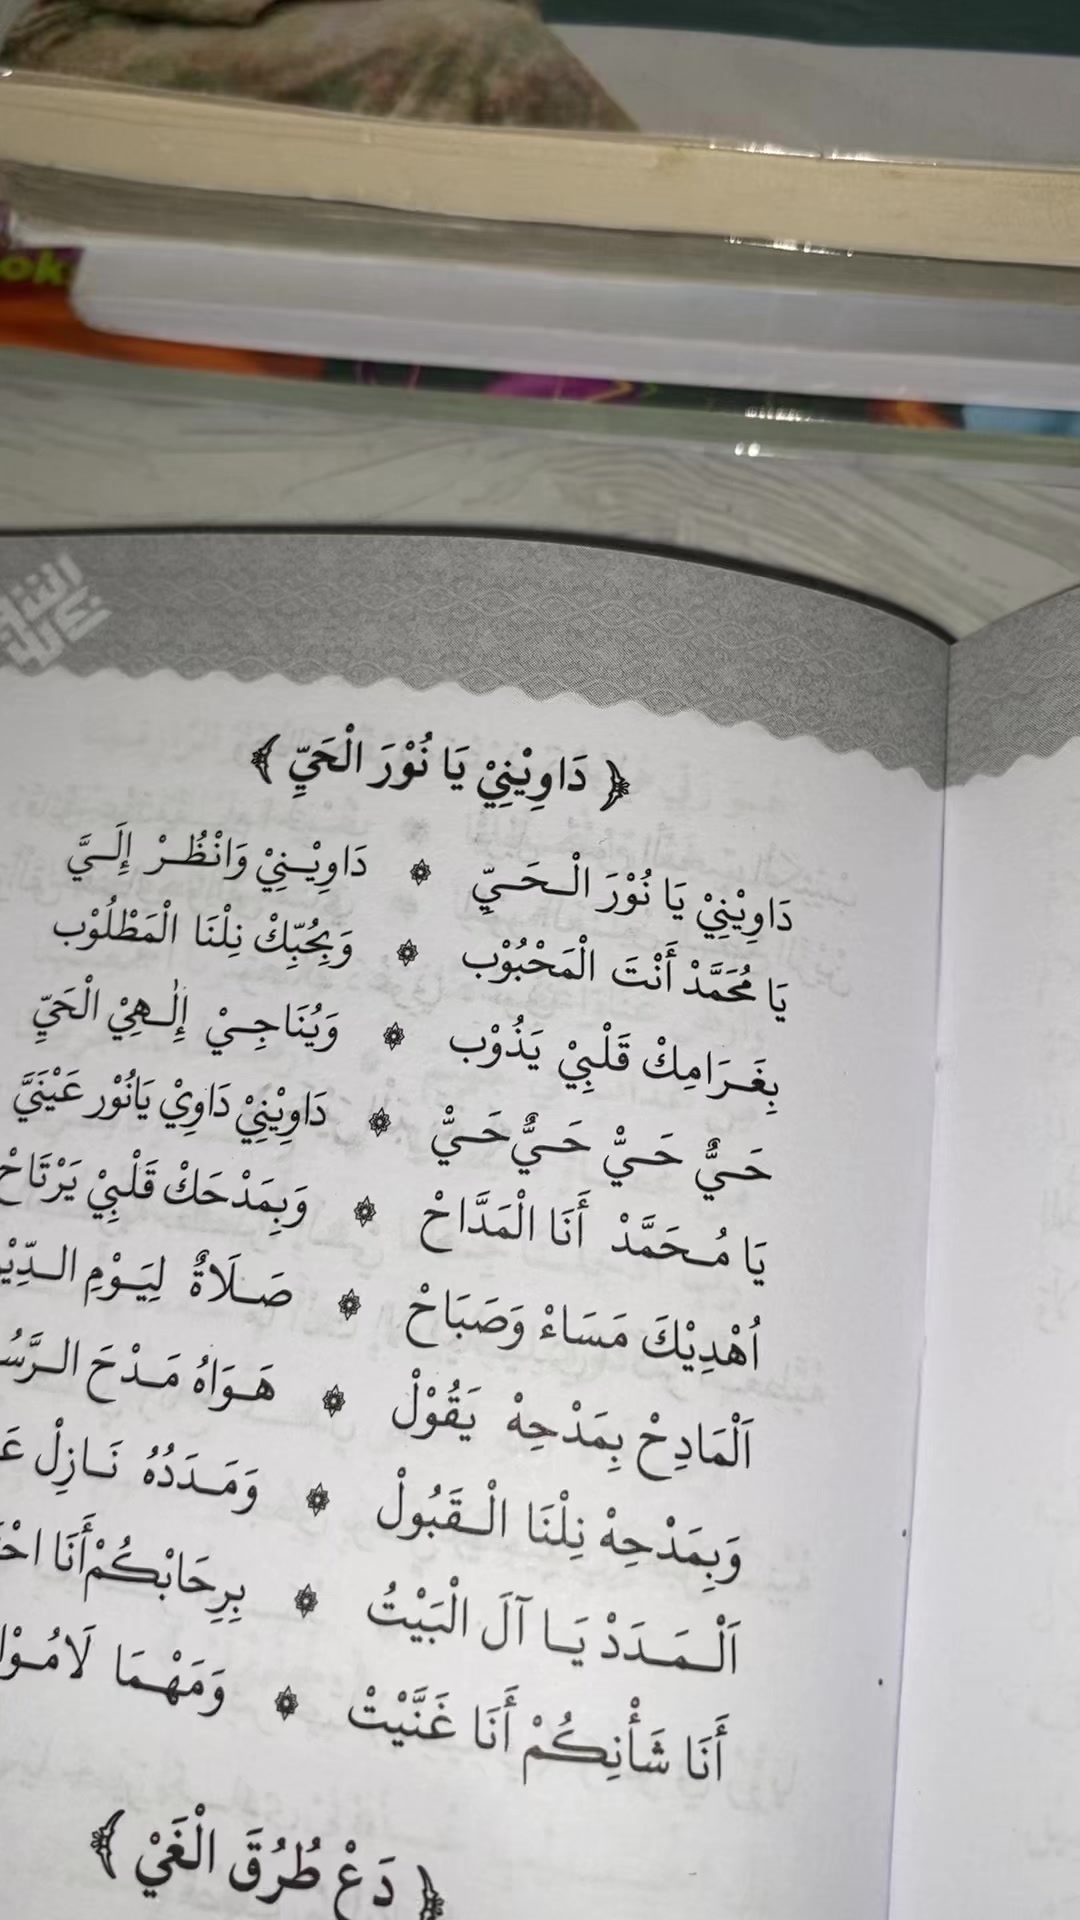 ok
دَاوِيْنِيْ يَا نُوْرَ الْحَيِّ
دَاوِيْنِيْ يَا نُوْرَ الْـحَـيِّ ۞ دَاوِيْـنِيْ وَانْظُـرْ إِلَـيَّ
يَا مُحَمَّدْ أَنْتَ الْمَحْبُوْب ۞ وَبِحُبِّكْ نِلْنَا الْمَطْلُوْب
بِغَـرَامِكْ قَلْبِيْ يَذُوْب ۞ وَيُنَاجِـيْ إِلٰـهِيْ الْحَيِّ
حَـيٌّ حَـيْ حَـيٌّ حَـيْ ۞ دَاوِيْنِيْ دَاوِيْ يَانُوْر عَيْنَيَّ
يَا مُـحَمَّدْ أَنَا الْمَدَّاحْ ۞ وَبِمَدْحَكْ قَلْبِيْ يَرْتَاحْ
اُهْدِيْكَ مَسَاءْ وَصَبَاحْ ۞ صَـلَاةٌ لِيَـوْمِ
اَلْمَادِحْ بِمَدْحِهْ يَقُوْلْ ۞ هَـوَاهُ مَـدْحَ
وَبِمَدْحِهْ نِلْنَا الْـقَبُولْ ۞ وَمَـدَدُهُ نَـازِلْ
اَلْـمَـدَدْ يَـا آلَ الْبَيْتُ ۞ بِرِحَابْكُمْ أَنَا
أَنَا شَأْنِكُمْ أَنَا غَنَّيْتْ ۞ وَمَهْـمَا
دَعْ طُرُقَ الْغَيْ